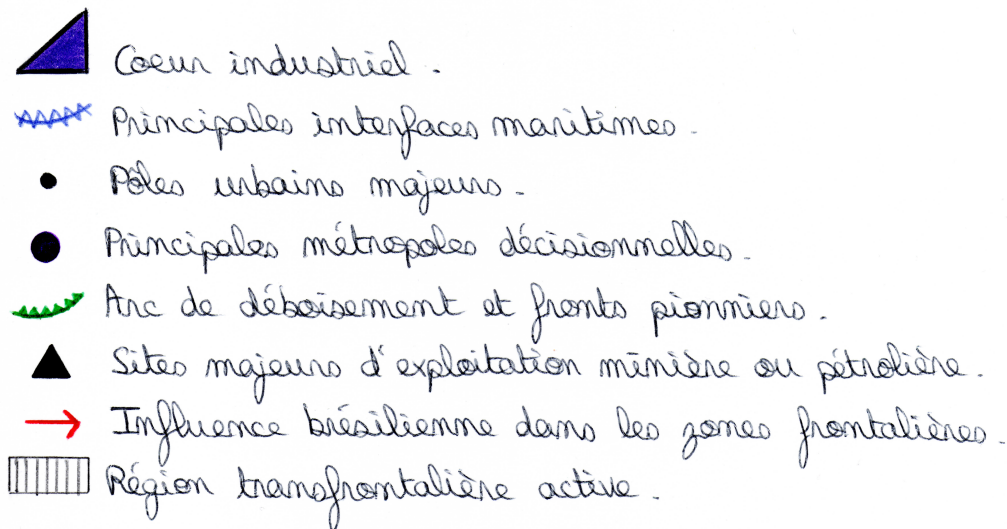 Coeur industriel.
Principales interfaces maritimes.
Pôles urbains majeurs.
Principales métropoles décisionnelles.
Arc de déboisement et fronts pionniers.
Sites majeurs d'exploitation minière ou pétrolière.
Influence brésilienne dans les zones frontalières.
Région transfrontalière active.